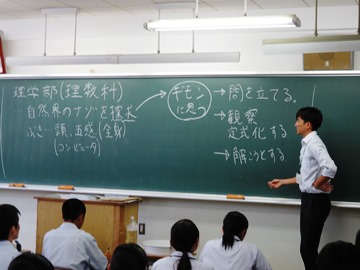 理学部(理教科)
… 自然界のナゾを探求
ぶき… 頭, 五感(全身)
(コンピュータ)
ギモン
に思う
→ 問を立てる、
→ 観察
定式化する
→ 解こうとする